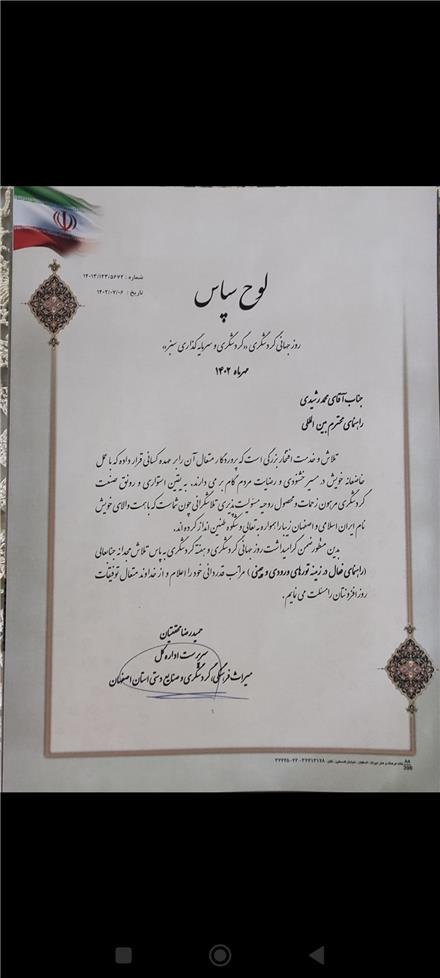 شماره : ۱۴۰۱۳/۱۲۳/۵۶۷۲
تاریخ : ۱۴۰۲/۰۷/۰۶
لوح سپاس
روز جهانی گردشگری «گردشگری و سرمایه گذاری سبز»
مهرماه ۱۴۰۲
جناب آقای محمد رشیدی
راهنمای محترم بین المللی
تلاش و خدمت افتخار بزرگی است که پروردگار متعال آن را بر عهده کسانی قرار داده که با عمل
خاضعانه خویش در مسیر خشنودی و رضایت مردم گام بر می دارند. به یقین استواری و رونق صنعت
گردشگری مرهون زحمات و محصول روحیه مسئولیت پذیری تلاشگرانی چون شماست که با همت والای خویش
نام ایران اسلامی و اصفهان زیبا را همواره به تعالی و شکوه طنین انداز کرده اند.
بدین منظور ضمن گرامیداشت روز جهانی گردشگری و هفته گردشگری به پاس تلاش مجدانه جنابعالی
(راهنمای فعال در زمینه تورهای ورودی و) مراتب قدردانی خود را اعلام و از خداوند متعال توفیقات
روز افزونتان را مسئلت می نمایم.
حمیدرضا محققیان
سرپرست اداره کل
میراث فرهنگی، گردشگری و صنایع دستی استان اصفهان